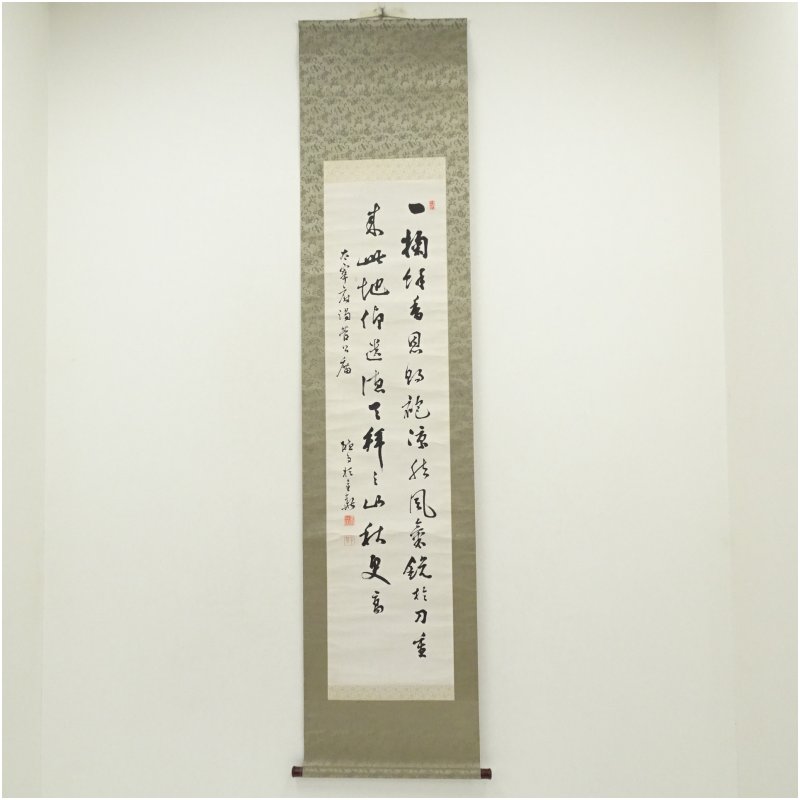 一掬餘香恩賜袍凛然風氣鋭於刀重
来此地仰遺徳天拝之山秋更高
太宰府謁菅公廟